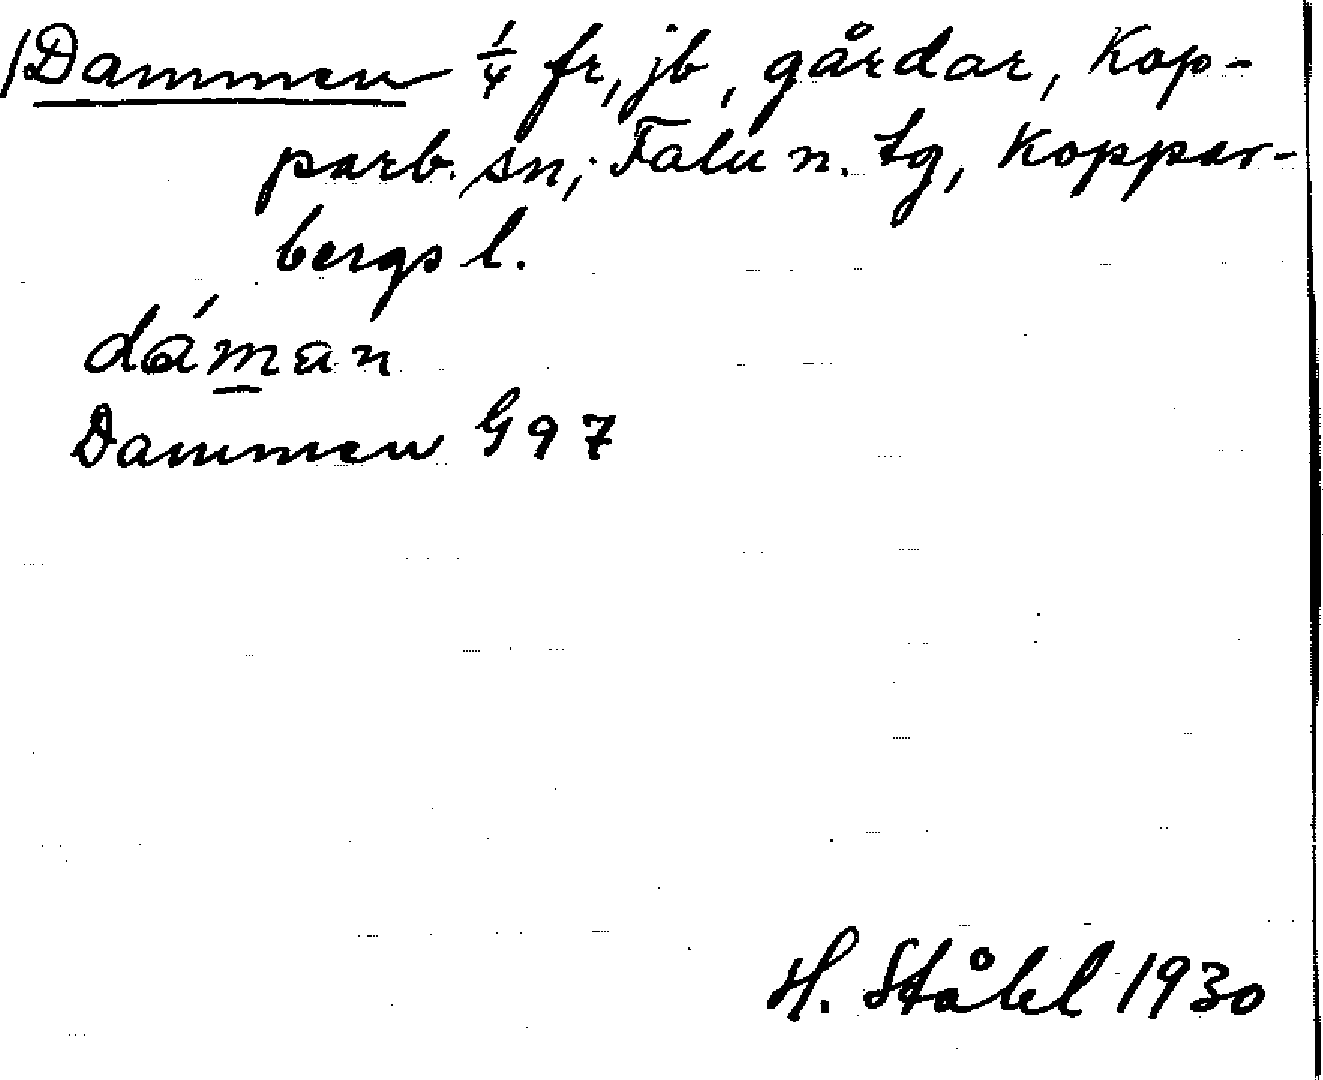 /Dammen 1/4 fr, jb, gårdar, Kop-
parb. sn; Falu n. tg, Koppar-
bergs l.
dáman
Dammen G 97
H. Ståhl 1930